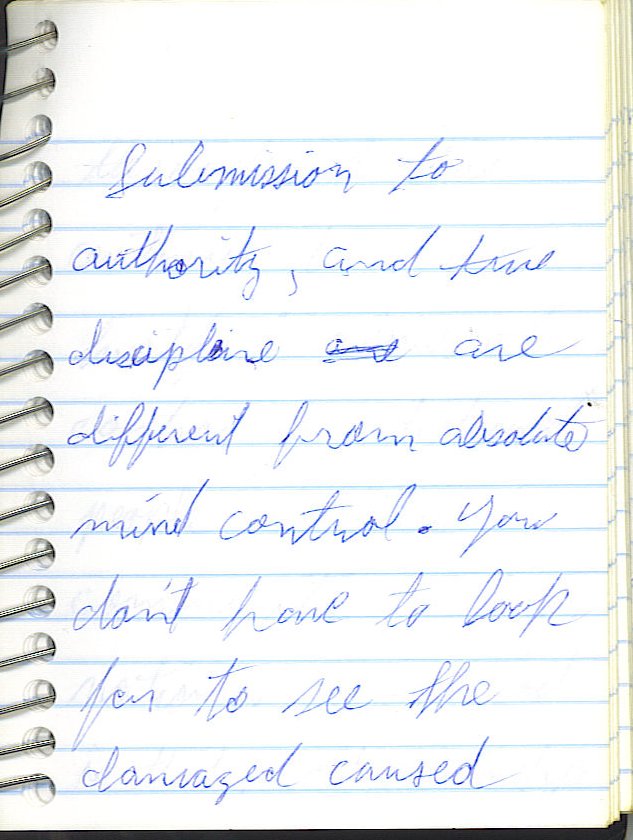 Submission to
authority, and true
discipline are
different from absolute
mind control. You
don't have to look
far to see the
damazed caused